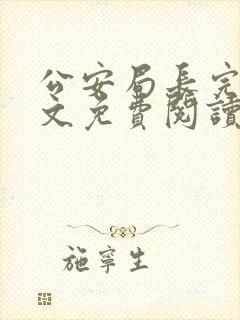 公安局長完
文免費閱讀
施寧生